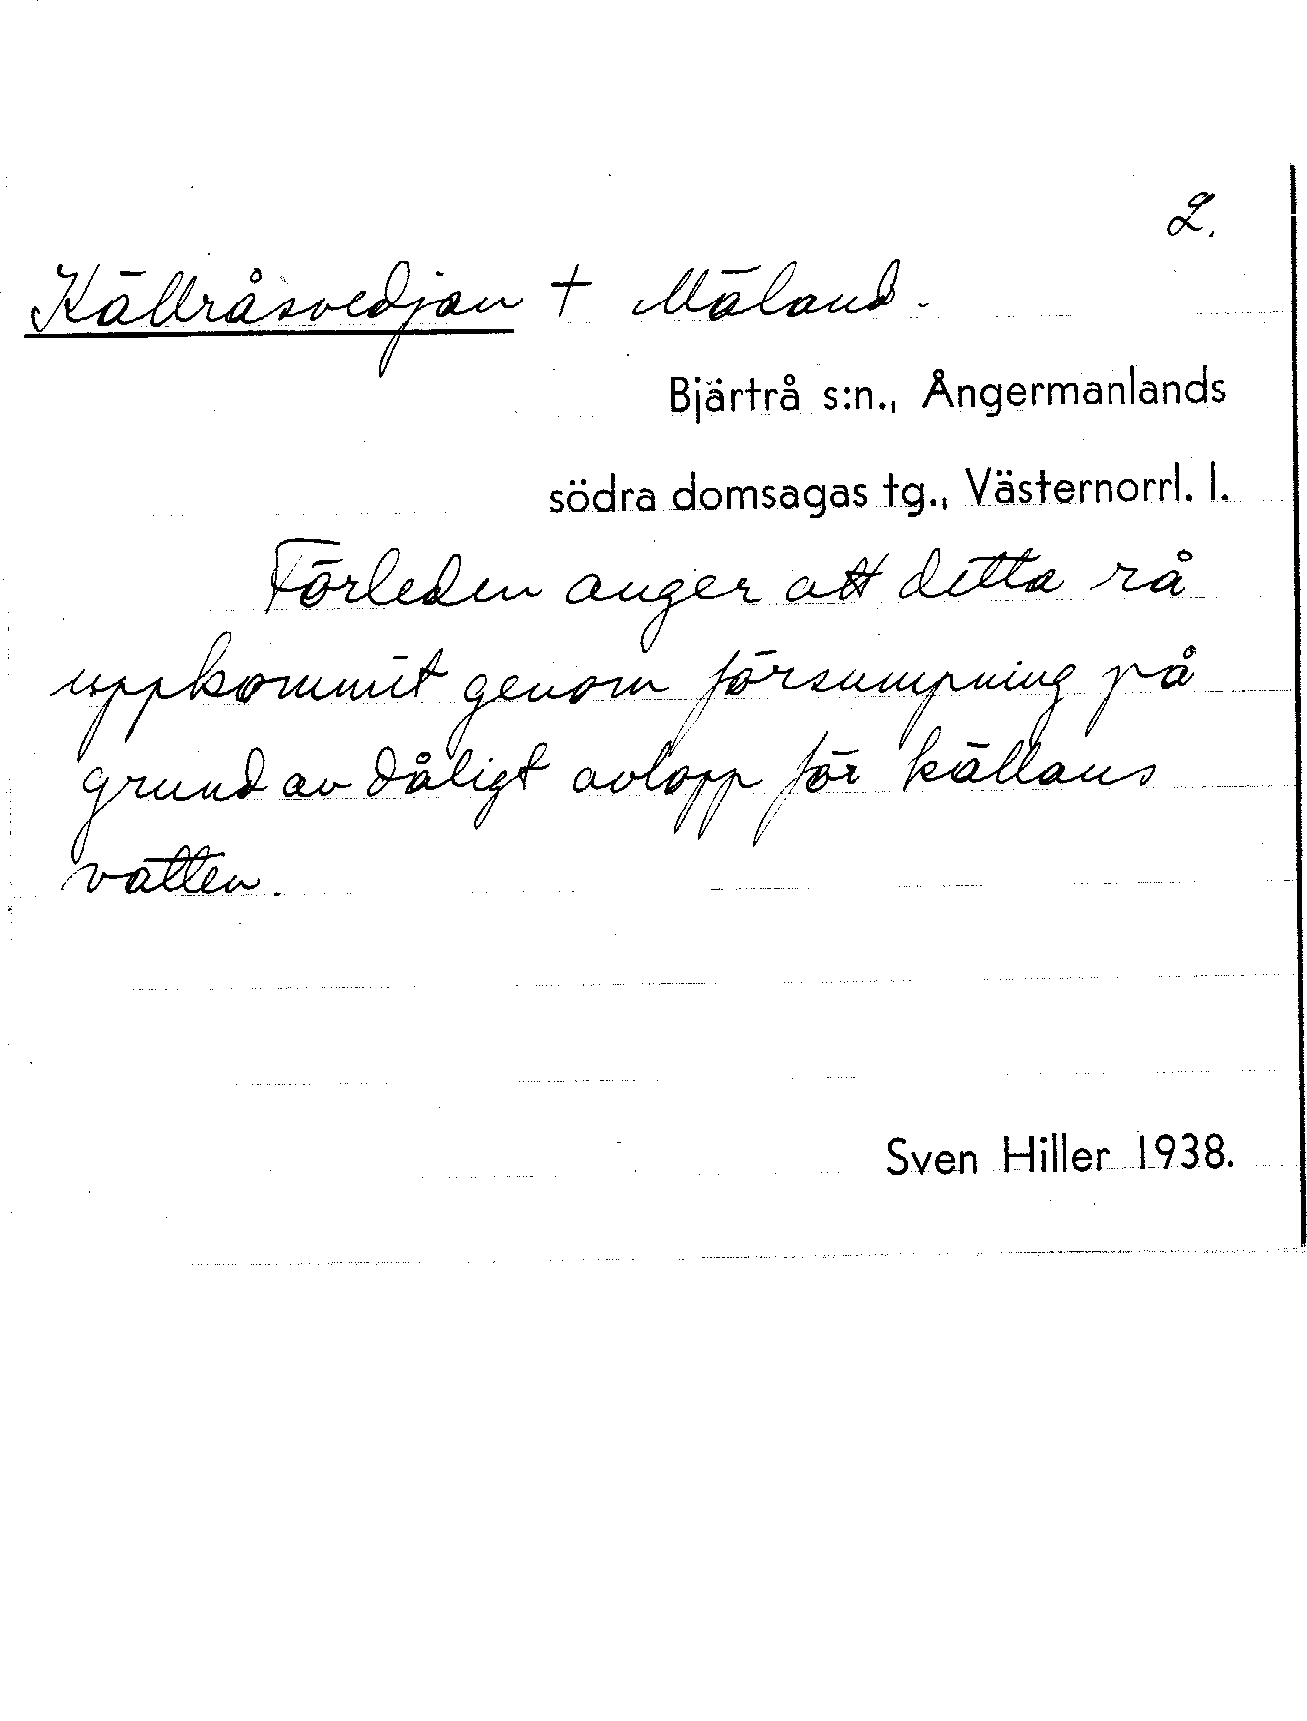 2.
Källråsvedjan + Mäland.
Bjärtrå s:n., Ångermanlands
södra domsagas tg., Västernorrl. l.
Förleden anger att detta rå
uppkommit genom försumpning på
grund av dåligt avlopp för källans
vatten.
Sven Hiller 1938.